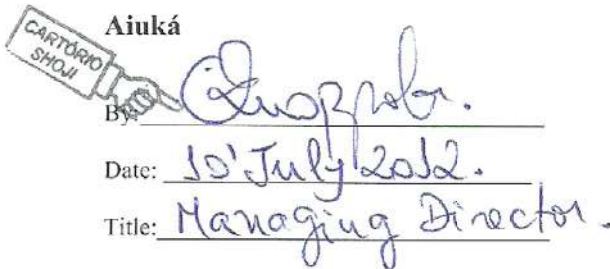 CARTÓRIO
SHOJI
Aiuká
By:
Date: 10' July 2012.
Title: Managing Director.